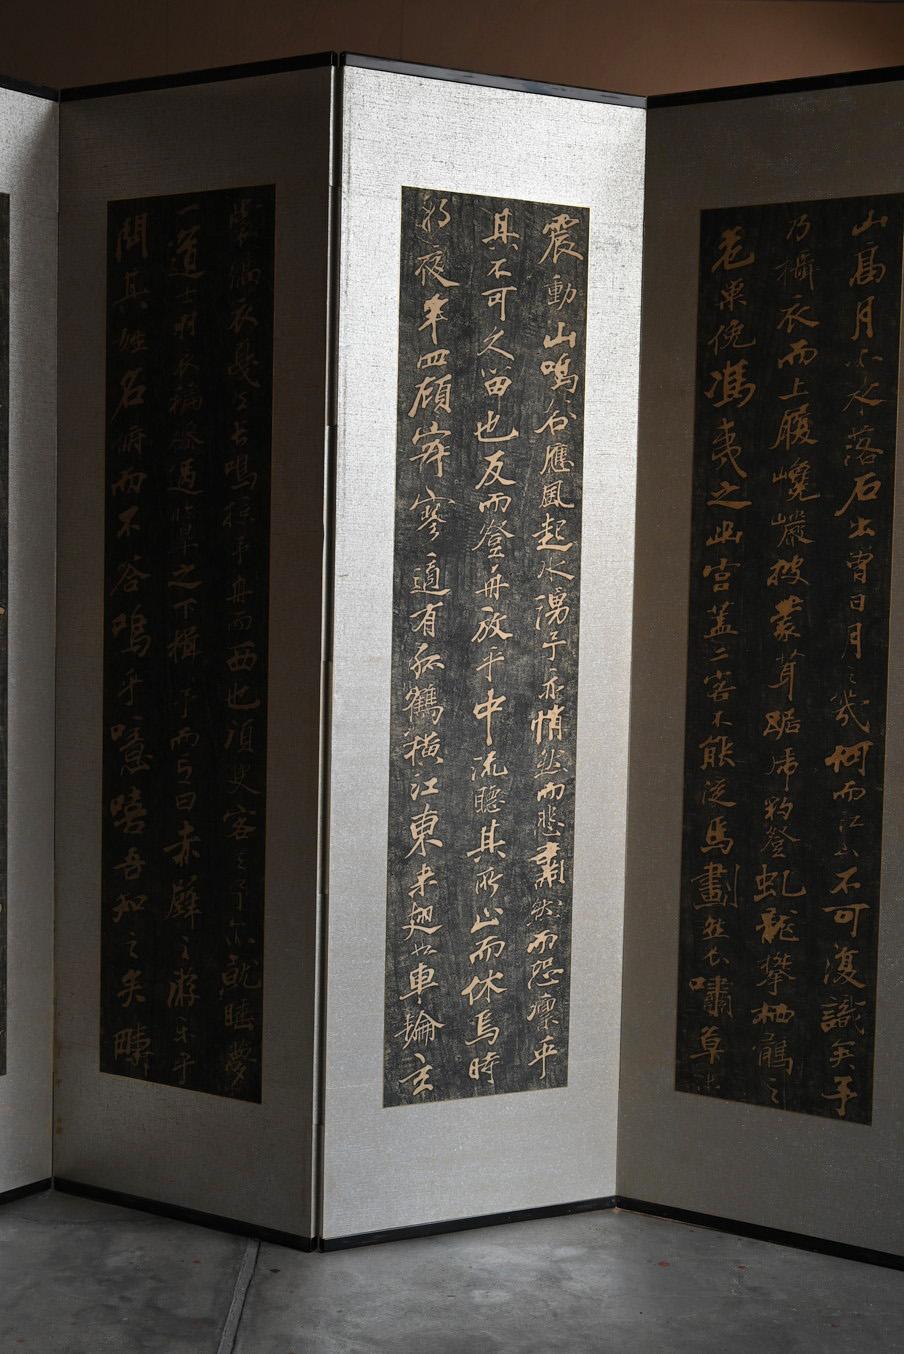 山高月小水落石出曾日月之幾何而江山不可復識矣予
乃攝衣而上履巉巖披蒙茸踞虎豹登虬龍攀栖鶻之
危巢俯馮夷之幽宮蓋二客不能從焉劃然長嘯草木
震動山鳴谷應風起水湧予亦悄然而悲肅然而恐凜乎
其不可久留也反而登舟放乎中流聽其所止而休焉時
將夜半四顧寂寥適有孤鶴橫江東來翅如車輪玄
裳縞衣戛然長鳴掠予舟而西也須臾客去予亦就睡夢
一道士羽衣蹁躚過臨皋之下揖予而言曰赤壁之游樂乎
問其姓名俯而不答嗚乎噫嘻吾知之矣疇